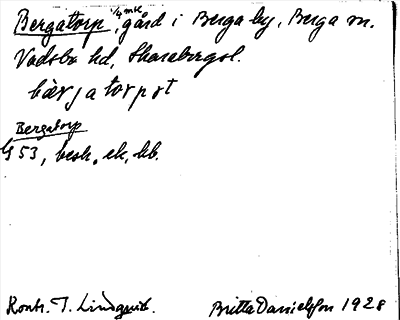 Bergatorp, 1/4 mtl, gård i Berga by, Berga sn.
Vadsbo hd, Skarabergsl.
bærjatorpət
Bergatorp
G 53, besk, ek, hb.
Kontr. I. Lindquist. Britta Danielsson 1928